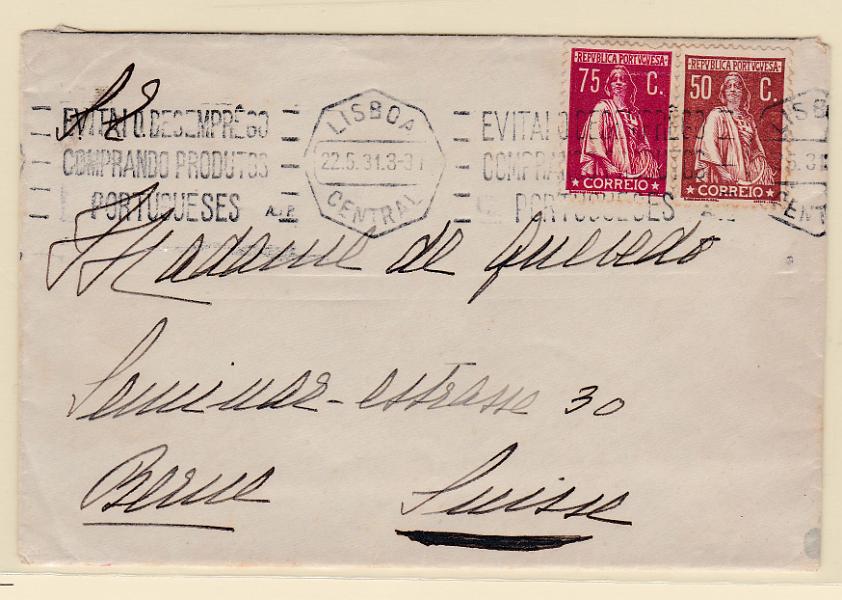 REPVBLICA PORTVGVESA
75 C.
CORREIO
REPVBLICA PORTVGVESA
50 C.
CORREIO
EVITAI O.DESEMPRÊGO
COMPRANDO PRODUTOS
PORTUGUESES
LISBOA
22.5.31.3-
CENTRAL
EVITAI O.DESEMPRÊGO
COMPRANDO PRODUTOS
PORTUGUESES
LISBO
5.31
CENT
Madame de Quevedo
Seminar-estrasse 30
Berne Suisse